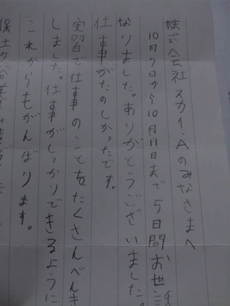 株式会社スカイ.Aのみなさまへ
10月7日から10月11日まで5日間お世話
なりました。ありがとうございました。
仕事がたのしかったです。
実習で仕事のことをたくさんべんき
しました。仕事がしっかりできるように
これからもがんばります。